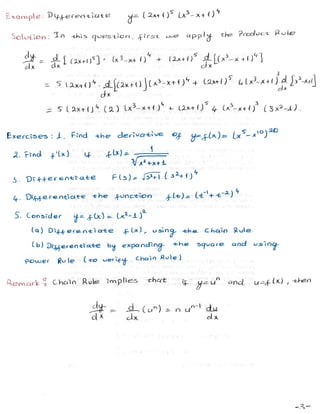 Example: Differentiate y = (2x+1)^5 (x^3-x+1)^4
Solution: In this question, first we apply the Product Rule
dy/dx = d/dx [(2x+1)^5] · (x^3-x+1)^4 + (2x+1)^5 d/dx [(x^3-x+1)^4]
= 5(2x+1)^4 · d/dx [(2x+1)] (x^3-x+1)^4 + (2x+1)^5 4(x^3-x+1)^3 d/dx [x^3-x+1]
= 5(2x+1)^4 (2) (x^3-x+1)^4 + (2x+1)^5 4 (x^3-x+1)^3 (3x^2-1).
Exercises: 1. Find the derivative of y=f(x)= (x^5-x^10)^20
2. Find f'(x) if f(x) = 1/∛(x^2+x+1)
3. Differentiate F(s) = √(s^3+1) (s^2+1)^4
4. Differentiate the function f(t) = (t^-1+t^-2)^4
5. Consider y=f(x) = (x^2-1)^2
(a) Differentiate f(x), using the Chain Rule
(b) Differentiate by expanding the square and using
power Rule (to verify Chain Rule)
Remark: Chain Rule implies that if y=u^n and u=f(x), then
dy/dx = d/dx (u^n) = n u^n-1 du/dx
-3-